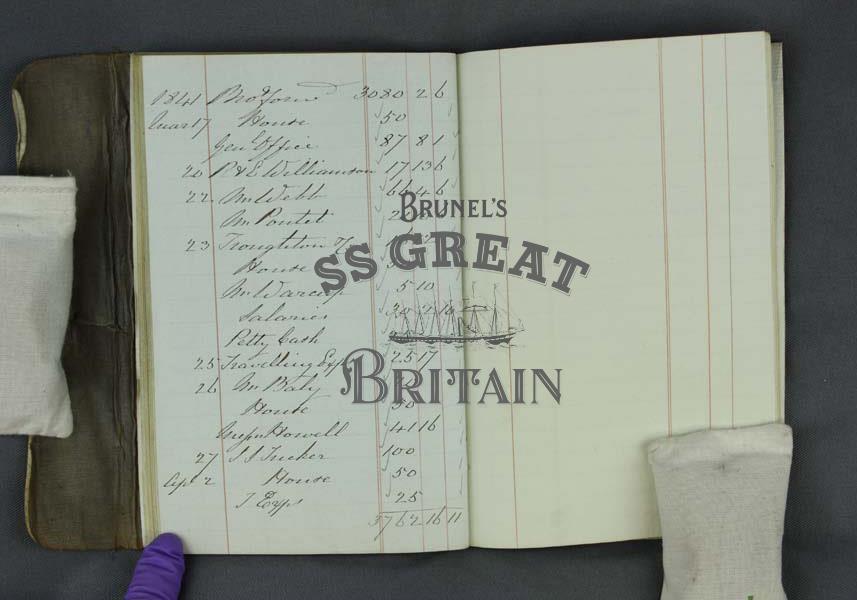 1841 Brot forwd 3080 2 6
Mar 17 House 50
Genl Office 87 8 1
20 R & E Williamson 17 13 6
22 Mr Webb 66 4 6
Mr Poutet
23 Troughton
House
Mr
Salaries
Petty Cash
25 Travelling Exps 25 17
26 Mr Baty
House 50
Howell 41 16
27 J J Tucker 100
Ap 2 House 50
T Exps 25
3762 16 11
BRUNEL'S
SS GREAT
BRITAIN